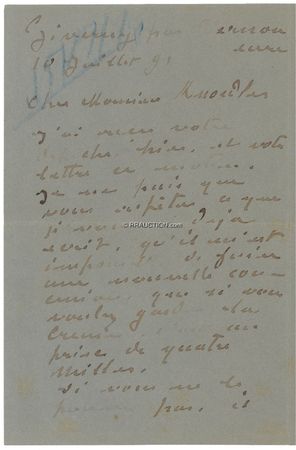 Giverny par Vernon
Eure
10 Juillet 91
Cher Monsieur Knoedler
J'ai reçu votre
dépêche hier, et votre
lettre ce matin.
Je ne puis que
vous répéter ce que
je vous ai déjà
écrit, qu'il m'est
impossible de faire
une nouvelle con-
cession, que si vous
voulez garder la
© RRAUCTION.COM
prise de quatre
Milles.
Si vous ne le
pouvez pas, il